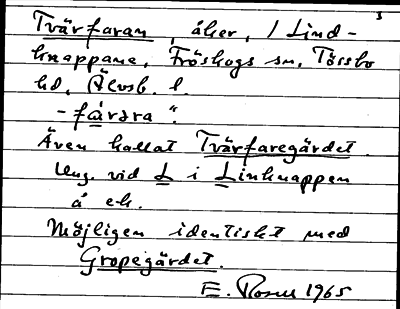 Tvärfaran, åker, / Lind-
knappane, Fröskogs sn, Tössbo
hd, Älvsb. l.
Även kallat Tvärfaregärdet.
Ung. vid L i Linknappen
å ek.
Möjligen identiskt med
Gropegärdet.
E. Rosus 1965